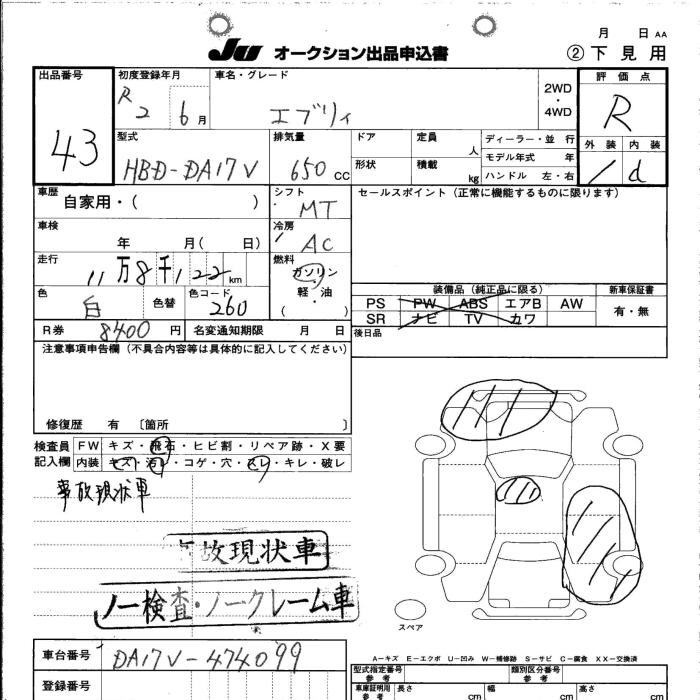 月 日 AA
JU オークション出品申込書 ②下見用
出品番号 43
初度登録年月 R 2 6月
車名・グレード エブリィ
2WD・4WD
評価点 R
外装 / 内装 d
型式 HBD-DA17V
排気量 650 cc
ドア 形状
定員 人
積載 kg
ディーラー・並行
モデル年式 年
ハンドル 左・右
車歴 自家用・( )
シフト MT
セールスポイント(正常に機能するものに限ります)
車検 年 月( 日)
冷房 AC
走行 11万8千122km
燃料 ガソリン・軽・油 ( )
色 白 色替 色コード 260
装備品(純正品に限る)
PS PW ABS エアB AW
SR ナビ TV カワ
新車保証書 有・無
R券 8400円 名変通知期限 月 日
後日品
注意事項申告欄(不具合内容等は具体的に記入してください)
修復歴 有 〔箇所 〕
検査員記入欄
FW キズ・飛石・ヒビ割・リペア跡・X要
内装 キズ・汚レ・コゲ・穴・スレ・キレ・破レ
事故現状車
故現状車
ノー検査・ノークレーム車
スペア
A-キズ E-エクボ U-凹み W-補修跡 S-サビ C-腐食 XX-交換済
車台番号 DA17V-474099
登録番号
型式指定番号 参考
類別区分番号 参考
車庫証明用 参考 長さ cm 幅 cm 高さ cm